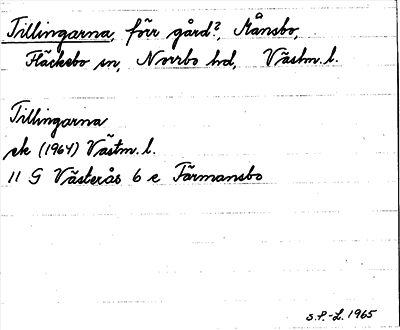 Tillingarna, förr gård?, Månsbo,
Fläckebo sn, Norrbo hd, Västm. l.
Tillingarna
ek (1964) Västm. l.
11 G Västerås 6 e Färmansbo
S.P.-L. 1965